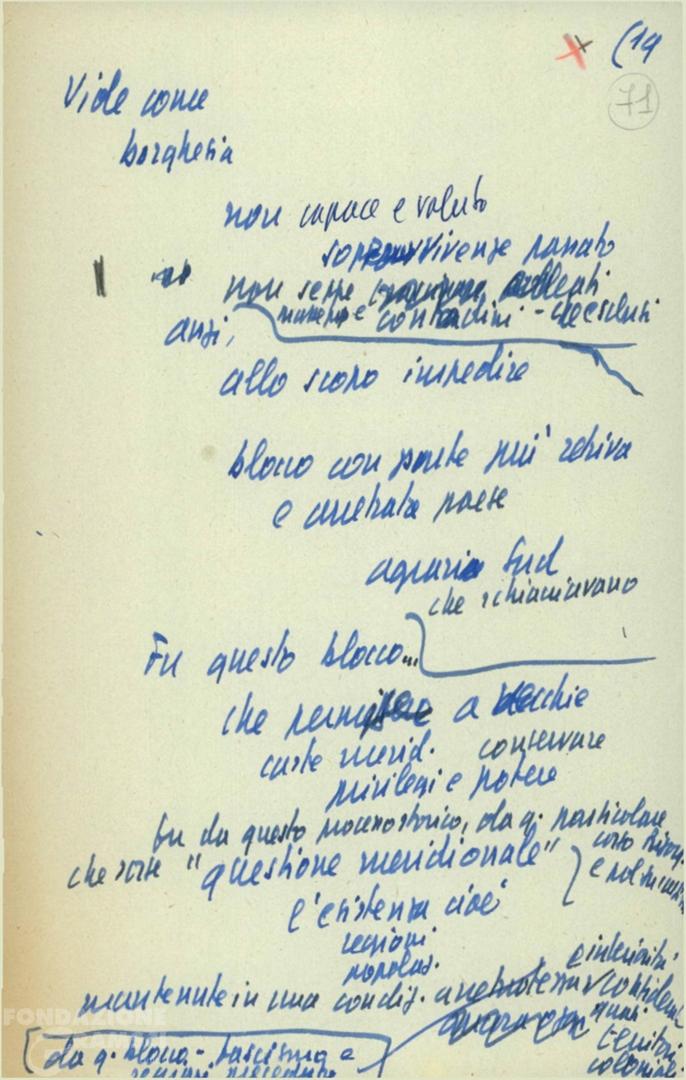 (14
71
Vide come
borghesia
non capace e voluto
sopravvivenze passato
non seppe alleati
contadini - che esclusi
anzi,
allo scopo impedire
blocco con parte più retriva
e arretrata paese
agrari Sud
che schiacciavano
Fu questo blocco...
che permise a vecchie
caste merid. conservare
privilegi e potere
Fu da questo processo storico, da q. particolare
corso Risorg.
che sorse "questione meridionale"
l'esistenza cioè
regioni
popolaz.
e inferiorità
mantenute in una condiz. arretratezza
quasi
territori
coloniali
da q. blocco - fascismo e
FONDAZIONE